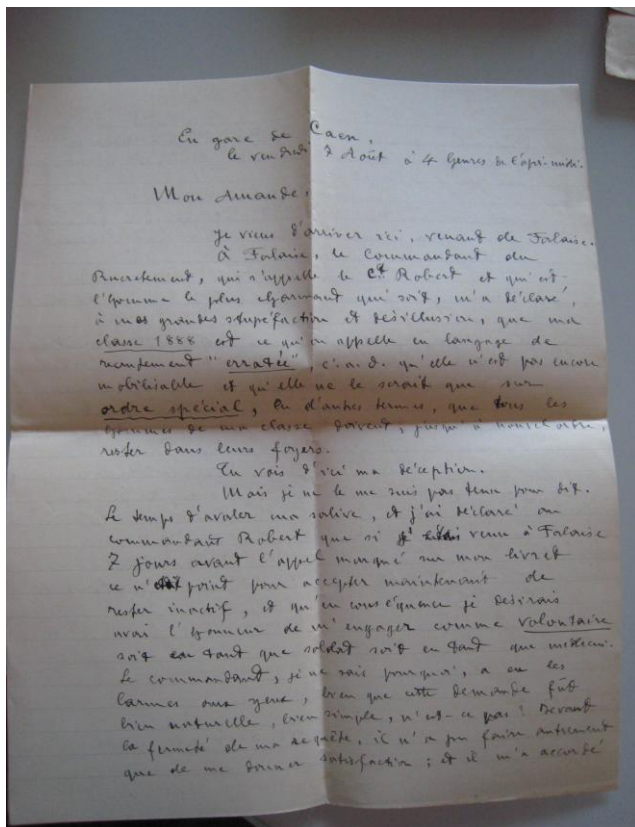 En gare de Caen,
le vendredi 7 Août à 4 heures de l'après-midi.
Mon Amande,
Je viens d'arriver ici, venant de Falaise.
À Falaise, le Commandant du
Recrutement, qui s'appelle le Ct Robert et qui est
l'homme le plus charmant qui soit, m'a déclaré,
à mes grandes stupéfaction et désillusion, que ma
classe 1888 est ce qu'on appelle en langage de
recrutement "erratée", c.a.d. qu'elle n'est pas encore
mobilisable et qu'elle ne le serait que sur
ordre spécial, En d'autres termes, que tous les
hommes de ma classe doivent, jusqu'à nouvel ordre,
rester dans leurs foyers.
Tu vois d'ici ma déception.
Mais je ne le me suis pas tenu pour dit.
Le temps d'avaler ma salive, et j'ai déclaré au
commandant Robert que si j'étais venu à Falaise
7 jours avant l'appel marqué sur mon livret
ce n'était point pour accepter maintenant de
rester inactif, et qu'en conséquence je désirais
avoir l'honneur de m'engager comme volontaire
soit en tant que soldat soit en tant que médecin.
Le commandant, je ne sais pourquoi, a eu les
larmes aux yeux, bien que cette demande fût
bien naturelle, bien simple, n'est-ce pas! Devant
la fermeté de ma requête, il n'a pu faire autrement
que de me donner satisfaction; et il m'a accordé